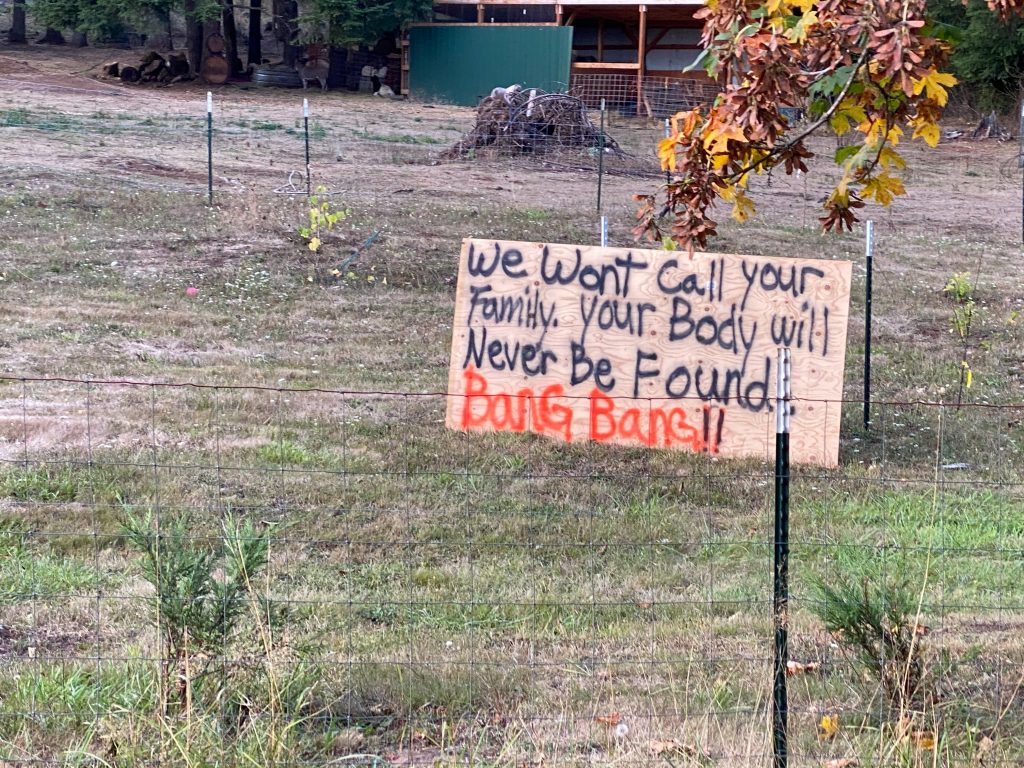 We Wont Call your
Family. your Body will
Never Be Found..
Bang Bang!!